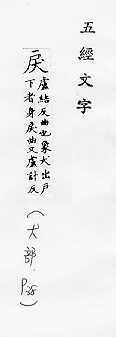 五經文字
戾盧結反曲也象犬出戶
下者身戾曲又盧計反
(犬部.P35)